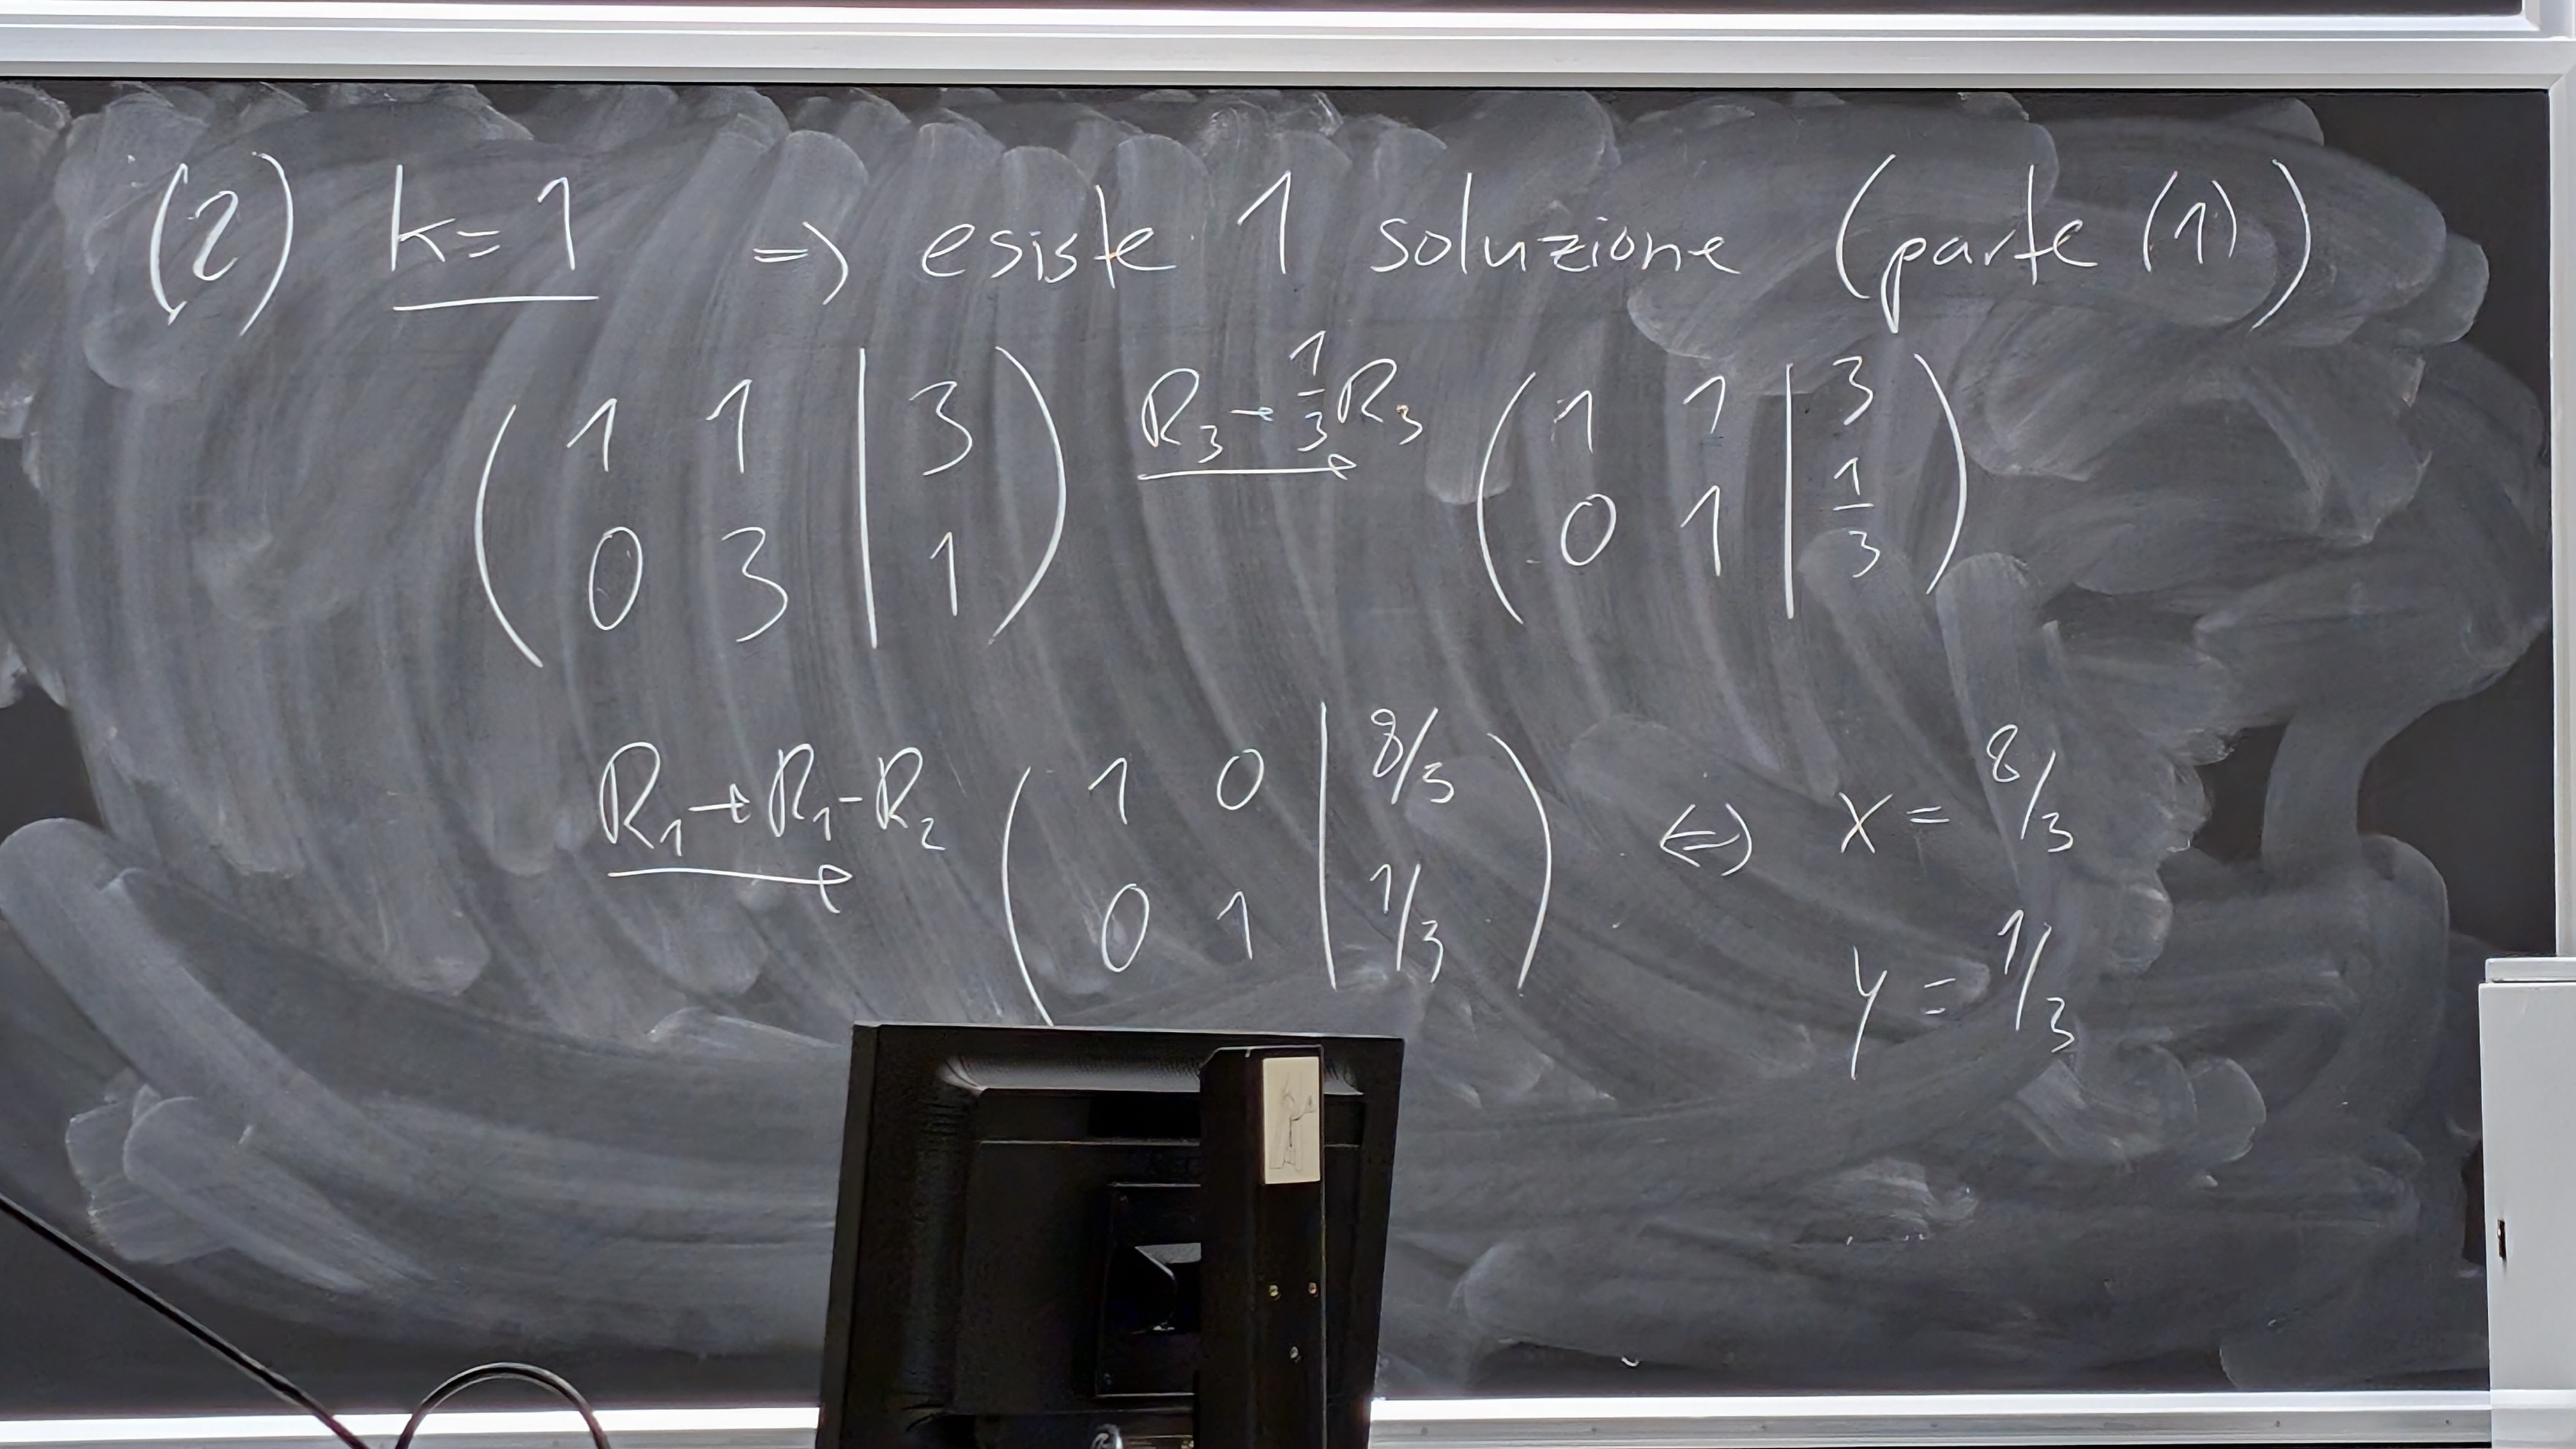 (2) k=1 => esiste 1 soluzione (parte (1))
( 1 1 | 3 ) R₃→1/3R₃ ( 1 1 | 3 )
( 0 3 | 1 ) ( 0 1 | 1/3 )
R₁→R₁-R₂ ( 1 0 | 8/3 ) <=> x = 8/3
( 0 1 | 1/3 ) y = 1/3